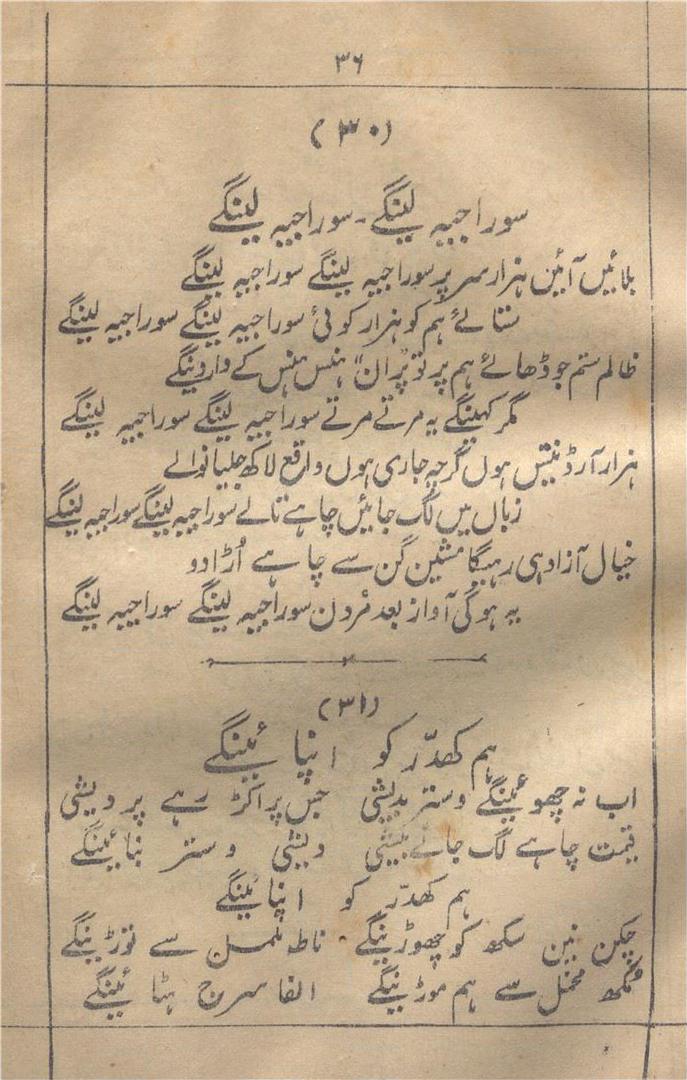 ۳۶
(۳۰)
سوراجیہ لینگے - سوراجیہ لینگے
بلائیں آئیں ہزار سر پر سوراجیہ لینگے سوراجیہ لینگے
ستائے ہم کو ہزار کوئی سوراجیہ لینگے سوراجیہ لینگے
ظالم ستم جو ڈھائے ہم پر تو پران ہنس ہنس کے وار دینگے
مگر کہینگے یہ مرتے مرتے سوراجیہ لینگے سوراجیہ لینگے
ہزار آرڈیننس ہوں گرچہ جاری ہوں واقع لاکھ جلیانوالے
زباں میں لگ جائیں چاہے تالے سوراجیہ لینگے سوراجیہ لینگے
خیال آزاد ہی رہیگا مشین گن سے چاہے اُڑا دو
یہ ہوگی آواز بعد مُردن سوراجیہ لینگے سوراجیہ لینگے
(۳۱)
ہم کھدّر کو اپنائینگے
اب نہ چھوئینگے وستر بدیشی جس پر اکڑ رہے پردیشی
قیمت چاہے لگ جائے بیشی دیشی وستر بنائینگے
ہم کھدّر کو اپنائینگے
چکن نین سکھ کو چھوڑینگے ناطہ ململ سے توڑینگے
مُکھ مخمل سے ہم موڑینگے الفا سرج ہٹائینگے